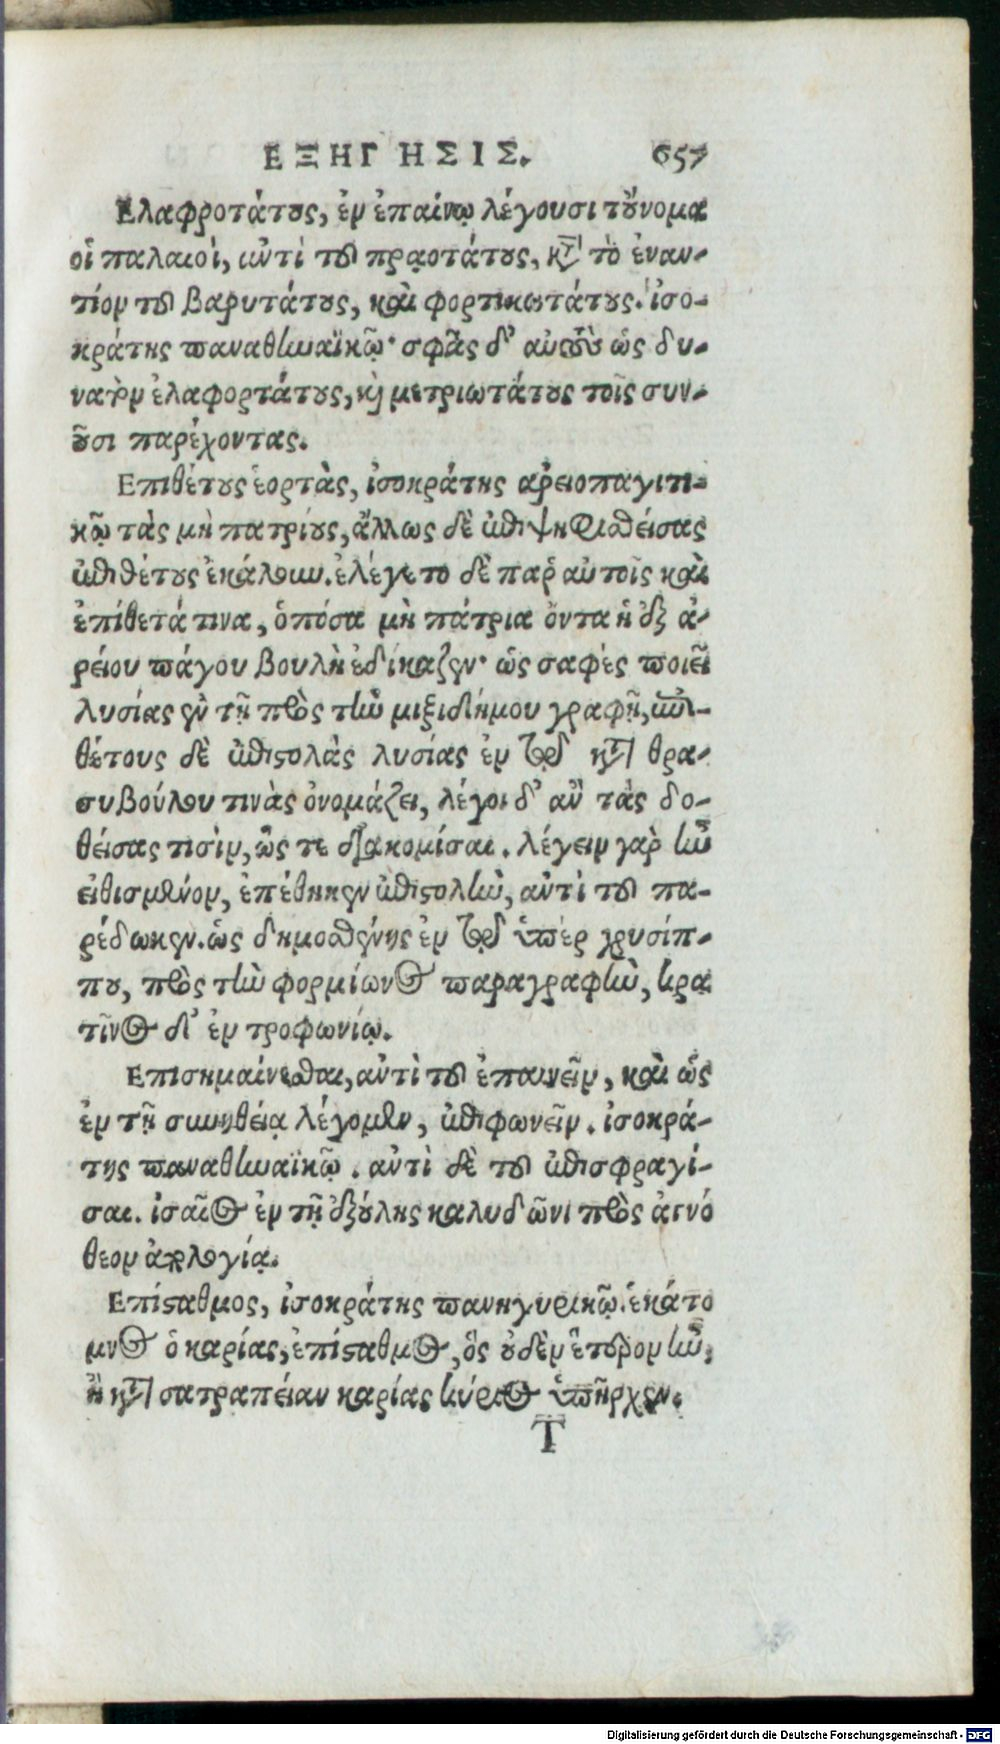 ΕΞΗΓΗΣΙΣ. 657
Ελαφροτάτους, ἐν ἐπαίνῳ λέγουσι τοὔνομα
οἱ παλαιοὶ, ἀντὶ τοῦ πραοτάτους, κατὰ τὸ ἐναν-
τίον τοῦ βαρυτάτους, καὶ φορτικωτάτους. ἰσο-
κράτης παναθηναϊκῷ· σφᾶς δ' αὐτοὺς ὡς δυ-
νατὸν ἐλαφορτάτους, καὶ μετριωτάτους τοῖς συν-
οῦσι παρέχοντας.
Επιθέτους ἑορτὰς, ἰσοκράτης ἀρειοπαγιτι-
κῷ τὰς μὴ πατρίους, ἄλλως δὲ ἐπιψηφισθείσας
ἐπιθέτους ἐκάλουν. ἐλέγετο δὲ παρ' αὐτοῖς καὶ
ἐπίθετά τινα, ὁπόσα μὴ πάτρια ὄντα ἡ ἐξ ἀ-
ρείου πάγου βουλὴ ἐδίκαζεν· ὡς σαφὲς ποιεῖ
λυσίας ἐν τῇ πρὸς τὴν μιξιδήμου γραφῇ, ἐπι-
θέτους δὲ ἐπιστολὰς λυσίας ἐν τῷ κατὰ θρα-
συβούλου τινὰς ὀνομάζει, λέγοι δ' ἂν τὰς δο-
θείσας τισὶν, ὥς τε διακομίσαι. λέγειν γὰρ ἦν
εἰθισμένον, ἐπέθηκεν ἐπιστολὴν, ἀντὶ τοῦ πα-
ρέδωκεν. ὡς δημοσθένης ἐν τῷ ὑπὲρ χρυσίπ-
που, πρὸς τὴν φορμίωνος παραγραφὴν, κρα
τῖνος δ' ἐν τροφωνίῳ.
Επισημαίνεσθαι, ἀντὶ τοῦ ἐπαινεῖν, καὶ ὡς
ἐν τῇ συνηθείᾳ λέγομεν, ἐπιφωνεῖν. ἰσοκρά-
της παναθηναϊκῷ. ἀντὶ δὲ τοῦ ἐπισφραγί-
σαι. ἰσαῖος ἐν τῇ ἐξούλης καλυδῶνι πρὸς ἁγνό
θεον ἀπολογίᾳ.
Επίσταθμος, ἰσοκράτης πανηγυρικῷ. ἑκάτο
μνος ὁ καρίας, ἐπίσταθμος, ὃς οὐδὲν ἕτερον ἦν,
ἢ κατὰ σατραπείαν καρίας κύριος ὑπῆρχεν.
Τ
Digitalisierung gefördert durch die Deutsche Forschungsgemeinschaft - DFG